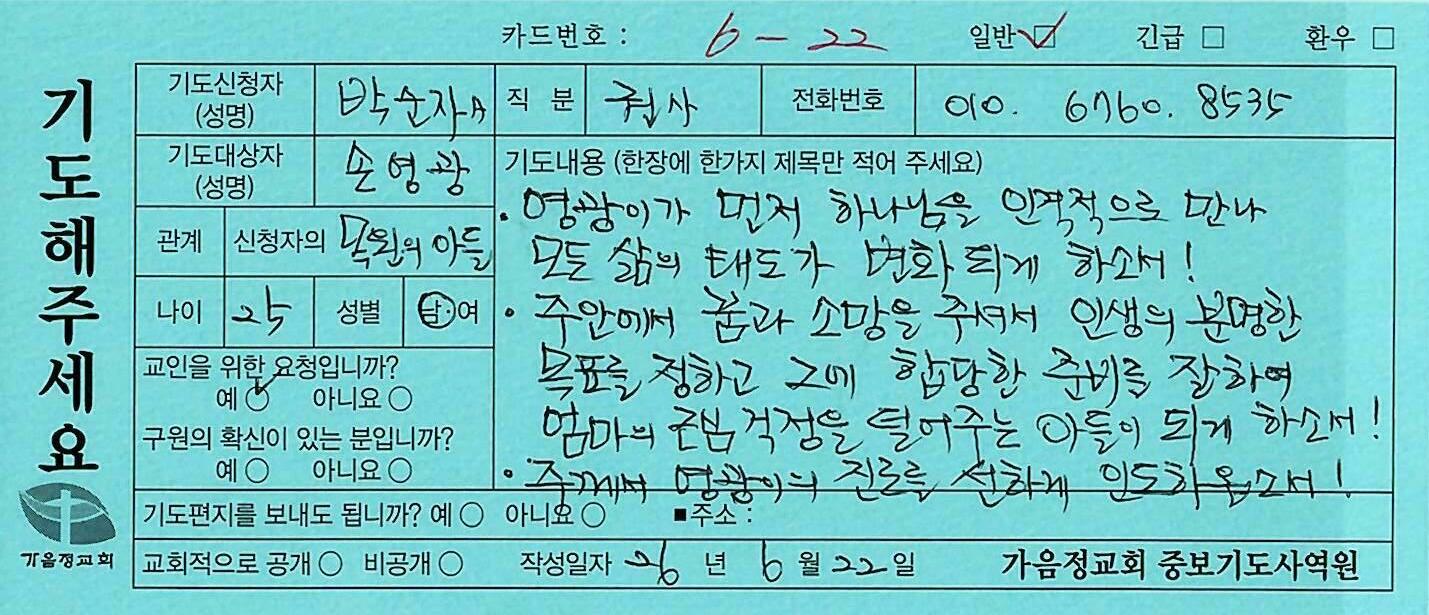 카드번호 : 6 - 22 일반 ☑ 긴급 □ 환우 □
기도해주세요
기도신청자 (성명) 박순자A 직 분 권사 전화번호 010. 6760. 8535
기도대상자 (성명) 손영광
관계 신청자의 목원의 아들
나이 25 성별 남·여
교인을 위한 요청입니까?
예 ○ 아니요 ○
구원의 확신이 있는 분입니까?
예 ○ 아니요 ○
기도내용 (한장에 한가지 제목만 적어 주세요)
• 영광이가 먼저 하나님을 인격적으로 만나
모든 삶의 태도가 변화 되게 하소서!
• 주안에서 꿈과 소망을 주셔서 인생의 분명한
목표를 정하고 그에 합당한 준비를 잘하여
엄마의 근심 걱정을 덜어주는 아들이 되게 하소서!
• 주께서 영광이의 진로를 선하게 인도하옵소서!
기도편지를 보내도 됩니까? 예 ○ 아니요 ○ ■주소 :
교회적으로 공개 ○ 비공개 ○ 작성일자 26 년 6 월 22 일 가음정교회 중보기도사역원
가음정교회